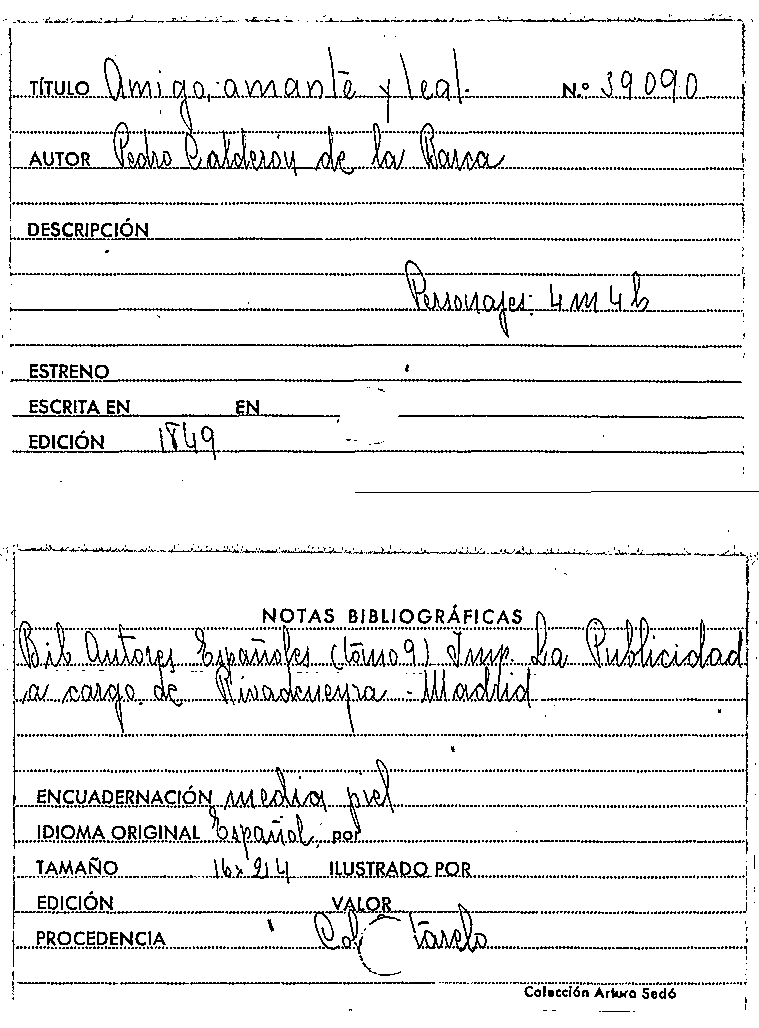 TÍTULO Amigo, amante y leal. N.º 39090
AUTOR Pedro Calderón de la Barca
DESCRIPCIÓN
Personajes: 4 m 4 h
ESTRENO
ESCRITA EN EN
EDICIÓN 1849
NOTAS BIBLIOGRÁFICAS
Bib Autores Españoles (tomo 9) Imp. La Publicidad
a cargo de Rivadeneyra - Madrid
ENCUADERNACIÓN media piel
IDIOMA ORIGINAL Español, por
TAMAÑO 16 x 24 ILUSTRADO POR
EDICIÓN VALOR
PROCEDENCIA Col
Colección Arturo Sedó